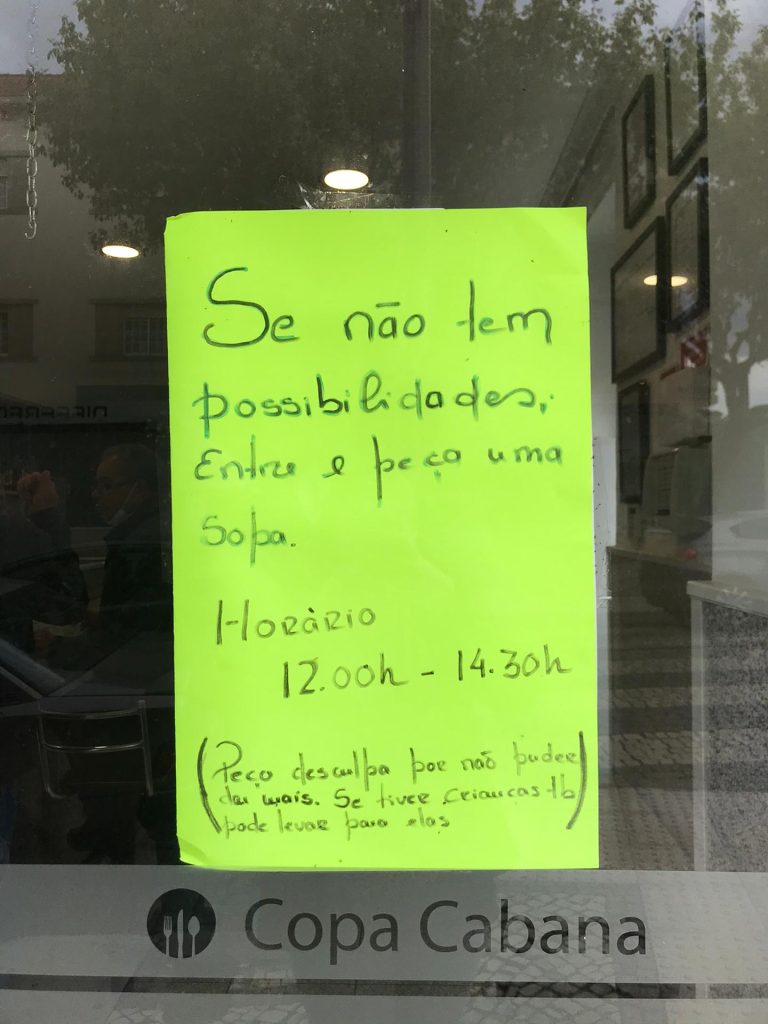 Se não tem
possibilidades,
Entre e peça uma
Sopa.
Horàrio
12.00h - 14.30h
(Peço desculpa por não puder
dar mais. Se tiver crianças tb
pode levar para elas)
Copa Cabana